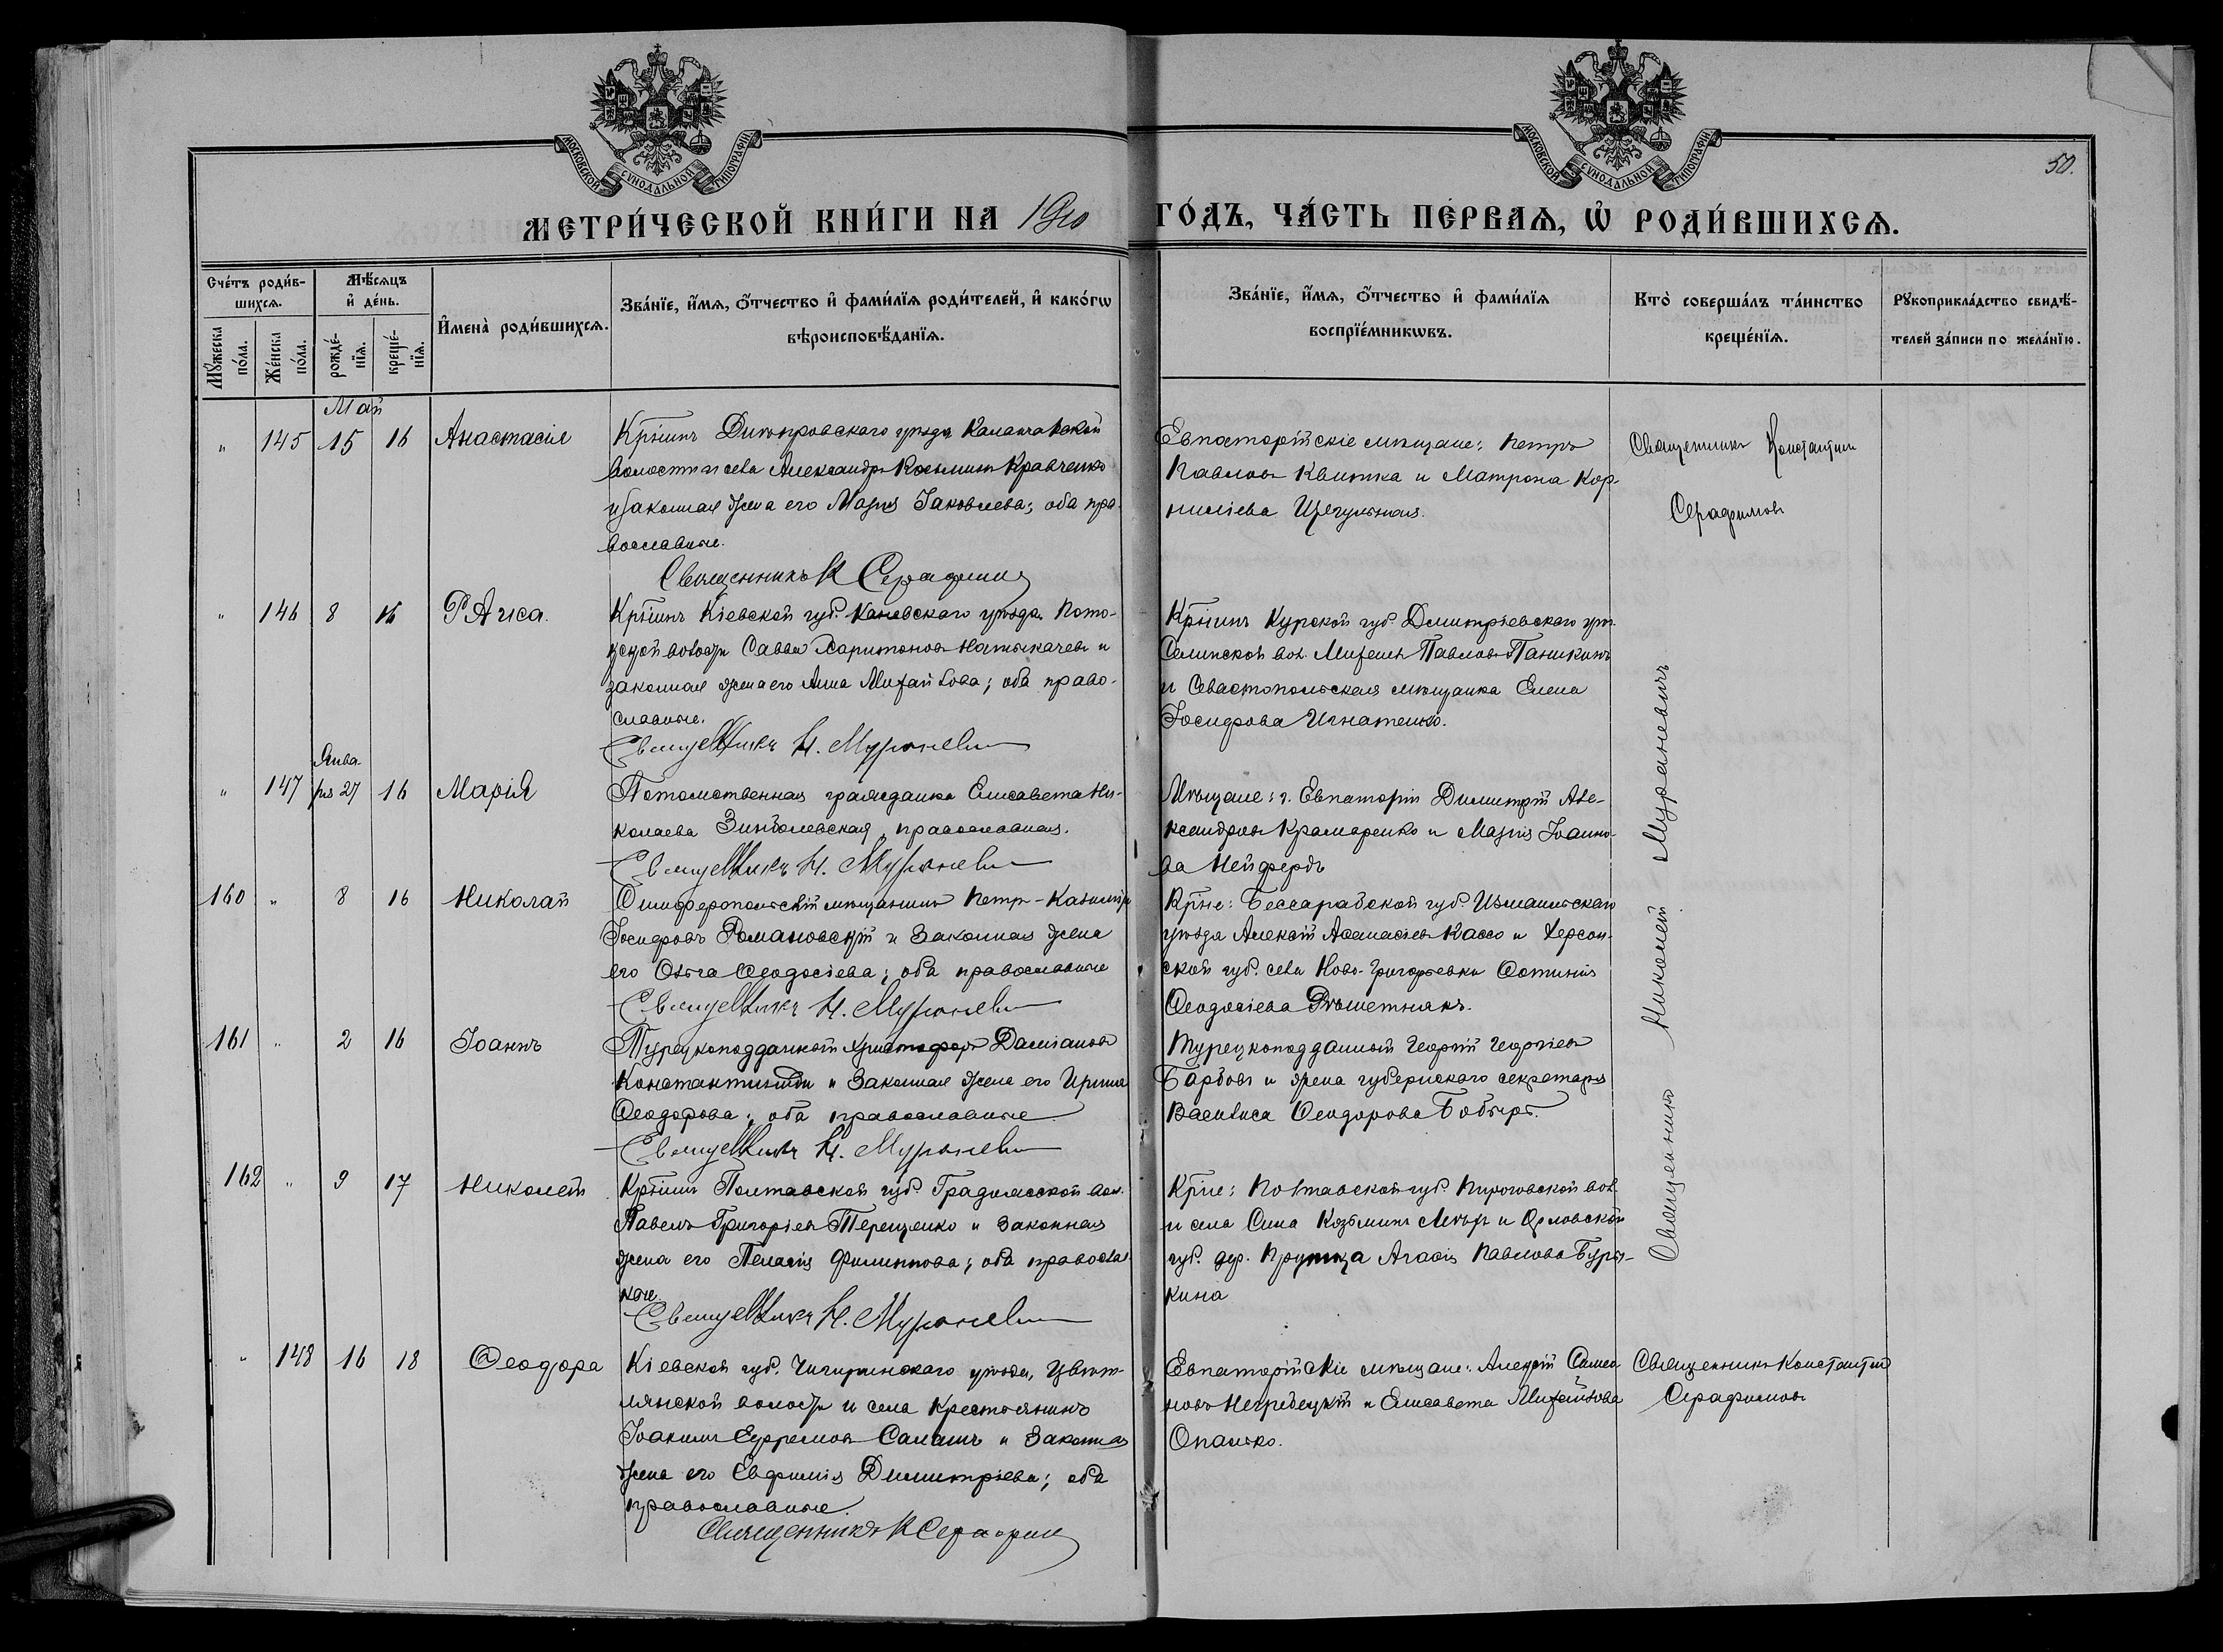 МОСКОВСКОЙ СѴНОДАЛЬНОЙ ТИПОГРАФІИ
МОСКОВСКОЙ СѴНОДАЛЬНОЙ ТИПОГРАФІИ
50.
МЕТРИ́ЧЕСКОЙ КНИ́ГИ НА 1910 ГО́ДЪ, ЧА́СТЬ ПЕ́РВАѦ, Ѡ҆ РОДИ́ВШИХСѦ.
Сче́тъ роди́в-
шихсѧ.
Мꙋ́жеска по́ла.
Же́нска по́ла.
Мѣ́сѧцъ
и҆ де́нь.
рожде́-
нїѧ.
креще́-
нїѧ.
И҆мена̀ роди́вшихсѧ.
Зва́нїе, и҆́мѧ, ѻ҆́тчество и҆ фами́лїѧ роди́телей, и҆ како́гѡ
вѣроисповѣ́данїѧ.
Зва́нїе, и҆́мѧ, ѻ҆́тчество и҆ фами́лїѧ
воспрїе́мникѡвъ.
Кто̀ соверша́лъ та́инство
креще́нїѧ.
Рꙋкоприкла́дство свидѣ́-
телей за́писи по жела́нїю.
Май
" 145 15 16 Анастасія
Кр͠нинъ Днѣпровскаго уѣзда Каланчакской
волости и села Александръ Косьминъ Кравченко
и законная жена его Марія Іаковлева; оба пра-
вославные.
Священникъ К Серафимов
Евпаторійскіе мѣщане: Петръ
Павловъ Квитка и Матрона Кор-
ниліева Щегульная.
Священникъ Константинъ
Серафимовъ
" 146 8 16 РАиса.
Кр͠нинъ Кіевской губ. Каневскаго уѣзда Пото-
цкой волости Савва Харитоновъ Натыкачевъ и
законная жена его Анна Михайлова; оба право-
славные.
Священникъ Н. Мураневич
Кр͠нинъ Курской губ. Димитріевскаго уѣз.
Селинской вол. Михаилъ Павловъ Паникинъ
и Севастопольская мѣщанка Елена
Іосифова Игнатенко.
Янва-
" 147 ря 27 16 МаріЯ
Потомственная гражданка Елисавета Ни-
колаева , православная.
Священникъ Н. Мураневич
Мѣщане: г. Евпаторіи Димитрій Але-
ксандровъ Крамаренко и Марія Іоанно-
ва Нейфердъ
160 " 8 16 Николай
Симферопольскій мѣщанинъ Петръ-Казиміръ
Іосифовъ Романовскій и законная жена
его Ольга Ѳеодосіева; оба православные
Священникъ Н. Мураневич
Кр͠не: Бессарабской губ. Измаильскаго
уѣзда Алексій Аѳанасіевъ Кассо и Херсон-
ской губ. села Ново-Григорьевки Фотинія
Ѳеодосіева Рѣшетнякъ.
161 " 2 16 Іоаннъ
Турецкоподданный Христофоръ Даміановъ
Константиниди и законная жена его Ирина
Ѳеодорова; оба православные
Священникъ Н. Мураневич
Турецкоподданный Георгій Георгіевъ
Барбовъ и жена губернскаго секретаря
Василиса Ѳеодорова Бобырь.
162 " 9 17 Николай
Кр͠нинъ Полтавской губ. Градижской вол.
Павелъ Григоріевъ Терещенко и законная
жена его Пелагія Филиппова; оба православ-
ные.
Священникъ Н. Мураневич
Кр͠не: Полтавской губ. Пироговской вол.
и села Сила Козьминъ и Орловской
губ. дер. Агафія Павлова Буры-
кина
Священникъ Николай Мураневичъ
" 148 16 18 Ѳеодора
Кіевской губ. Чигиринскаго уѣзда, Цвѣт-
лянской волости и села крестьянинъ
Іоакимъ Ефремовъ Салашъ и законная
жена его Евфимія Димитріева; оба
православные.
Священникъ К Серафимов
Евпаторійскіе мѣщане: Алексій Симео-
новъ Негребецкій и Елисавета Михайлова
Опанько.
Священникъ Константинъ
Серафимовъ